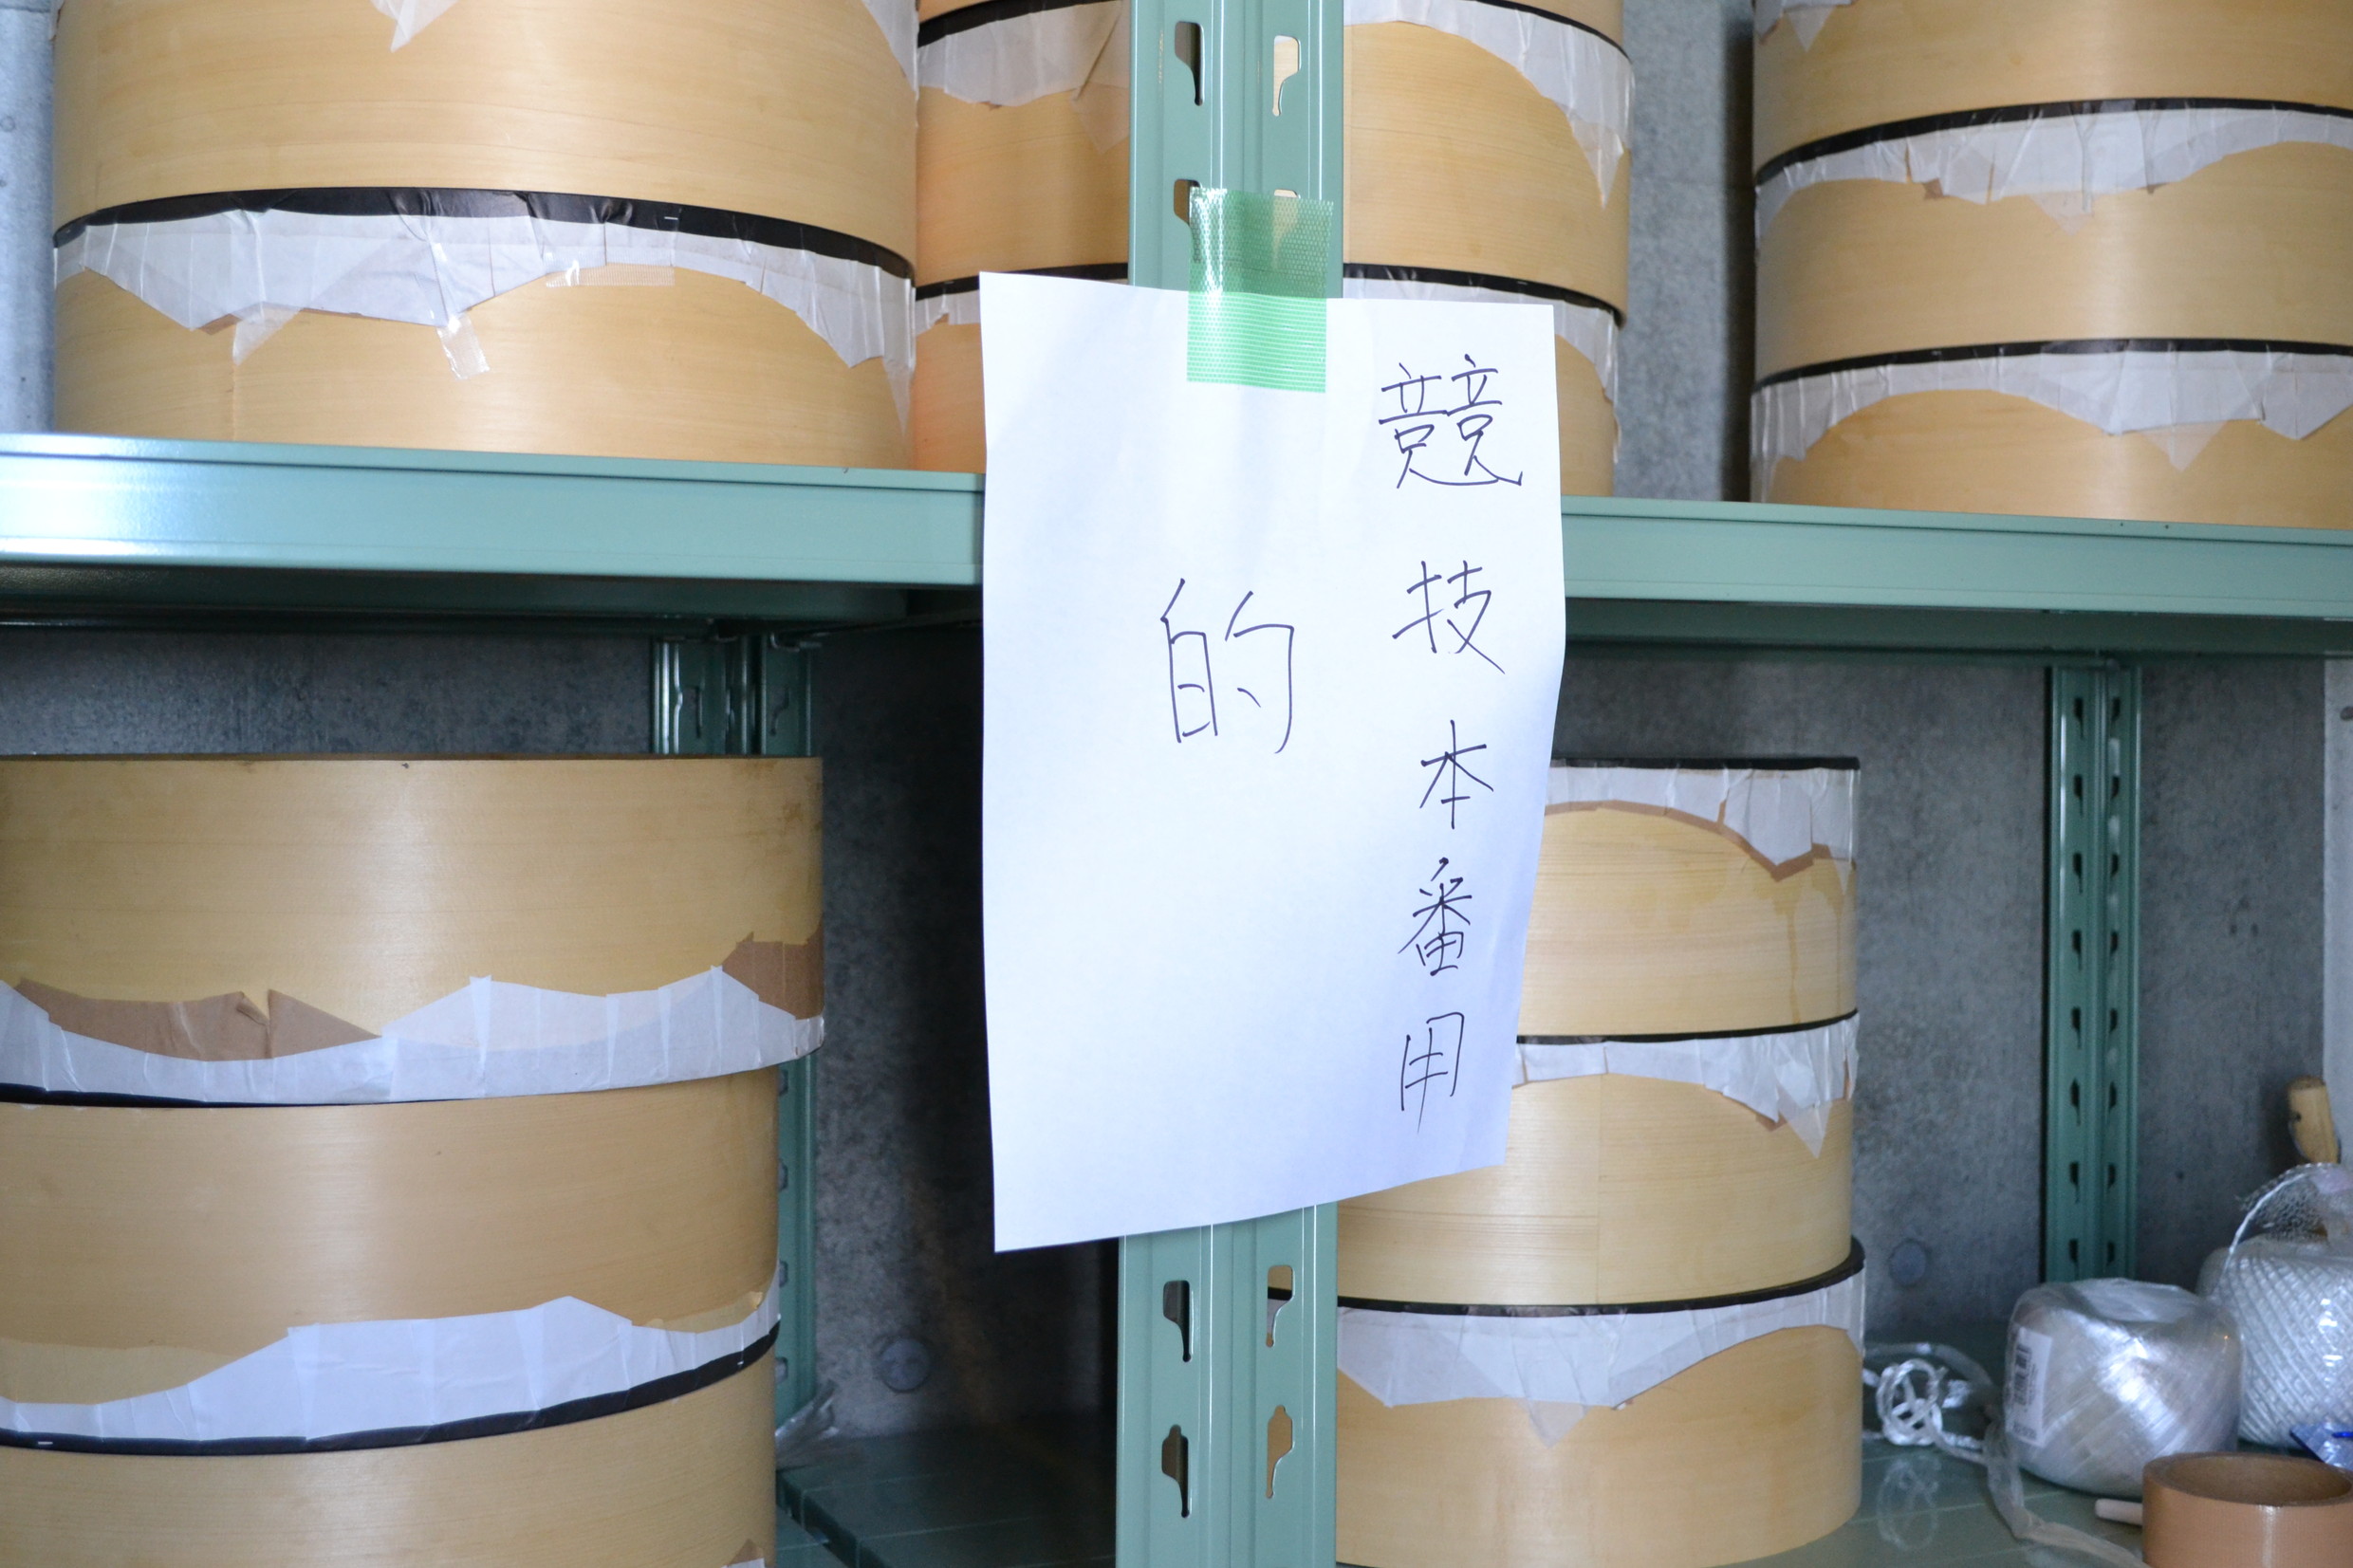 競技本番用
的